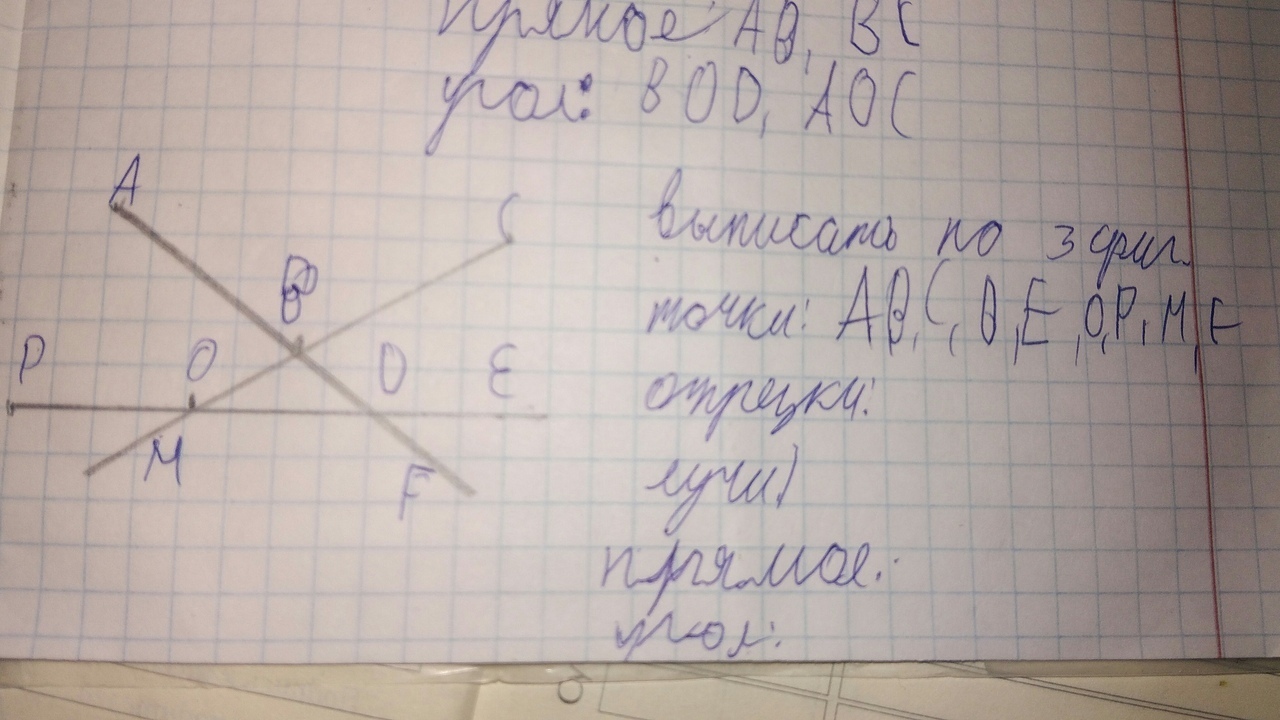 прямое AB, BC
угол: BOD, AOC
A
C
B
P
O
D
E
M
F
выписать по 3 фиг.
точки: A B, C, D, E, O, P, M, F
отрезки:
лучи)
прямое:
угол: